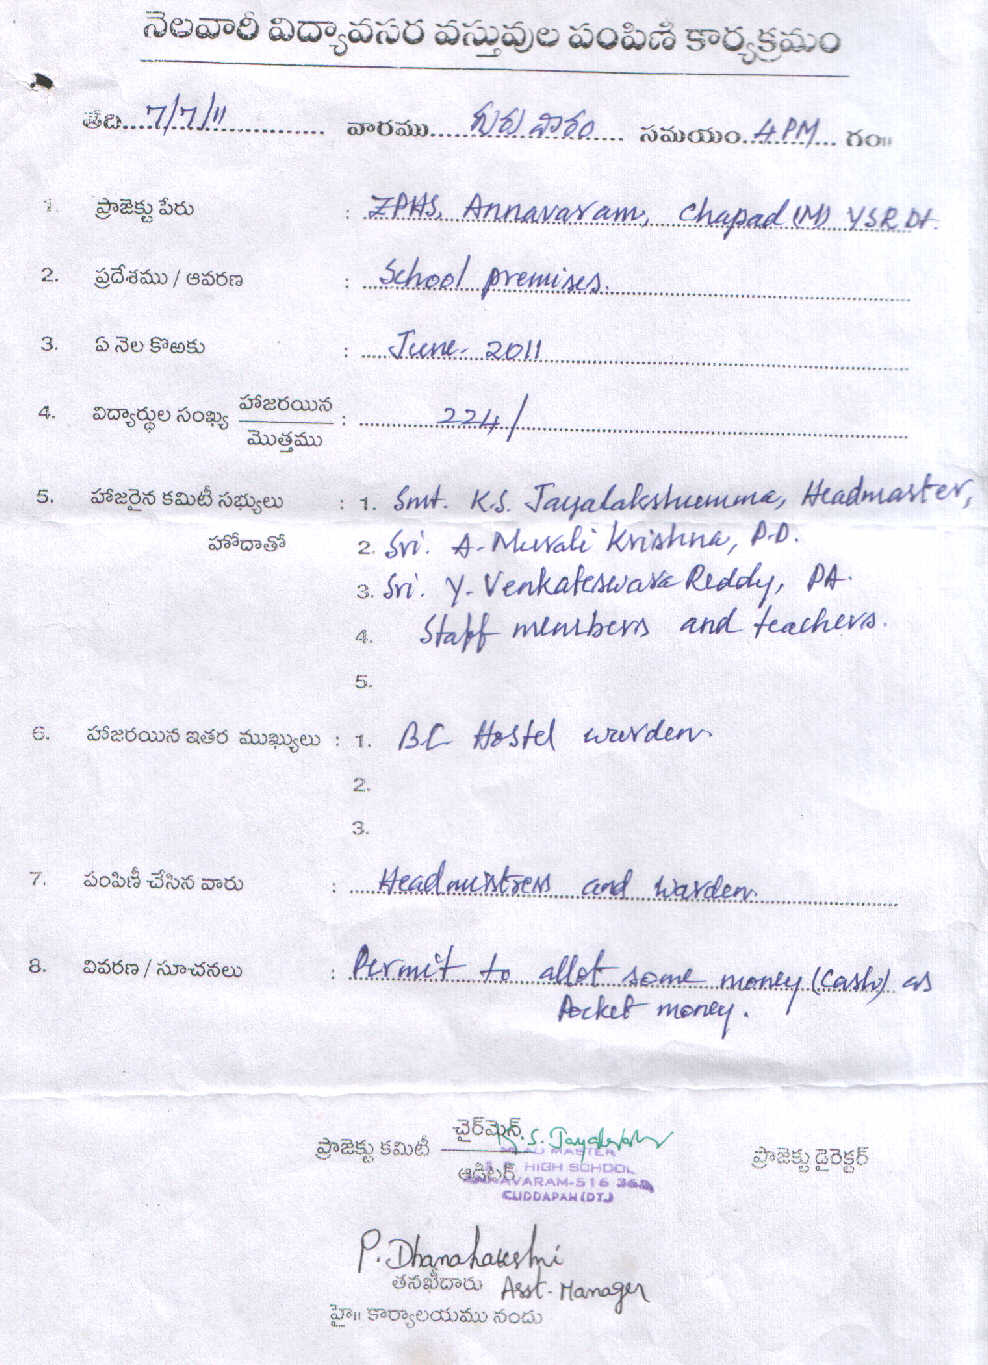 నెలవారీ విద్యావసర వస్తువుల పంపిణీ కార్యక్రమం
తేది....7/7/11.... వారము....గురువారం.... సమయం..4 PM.... గం॥
1. ప్రాజెక్టు పేరు : ZPHS, Annavaram, Chapad (M) YSR Dt.
2. ప్రదేశము / ఆవరణ : School premises.
3. ఏ నెల కొఱకు : June - 2011
4. విద్యార్థుల సంఖ్య హాజరయిన : 224/
మొత్తము
5. హాజరైన కమిటీ సభ్యులు : 1. Smt. K.S. Jayalakshumma, Headmaster,
హోదాతో 2. Sri. A. Murali Krishna, P.D.
3. Sri. Y. Venkateswara Reddy, PA.
4. Staff members and teachers.
5.
6. హాజరయిన ఇతర ముఖ్యులు : 1. BC Hostel warden.
2.
3.
7. పంపిణీ చేసిన వారు : Headmistress and warden.
8. వివరణ / సూచనలు : Permit to allot some money (Cash) as
Pocket money.
ప్రాజెక్టు కమిటీ చైర్‌మైన్ ప్రాజెక్టు డైరెక్టర్
ఆడిటర్
MASTER
HIGH SCHOOL
AVARAM-516
CUDDAPAH (DT.)
P. Dhanalakshmi
తనఖీదారు Asst. Manager
హై॥ కార్యాలయము నందు